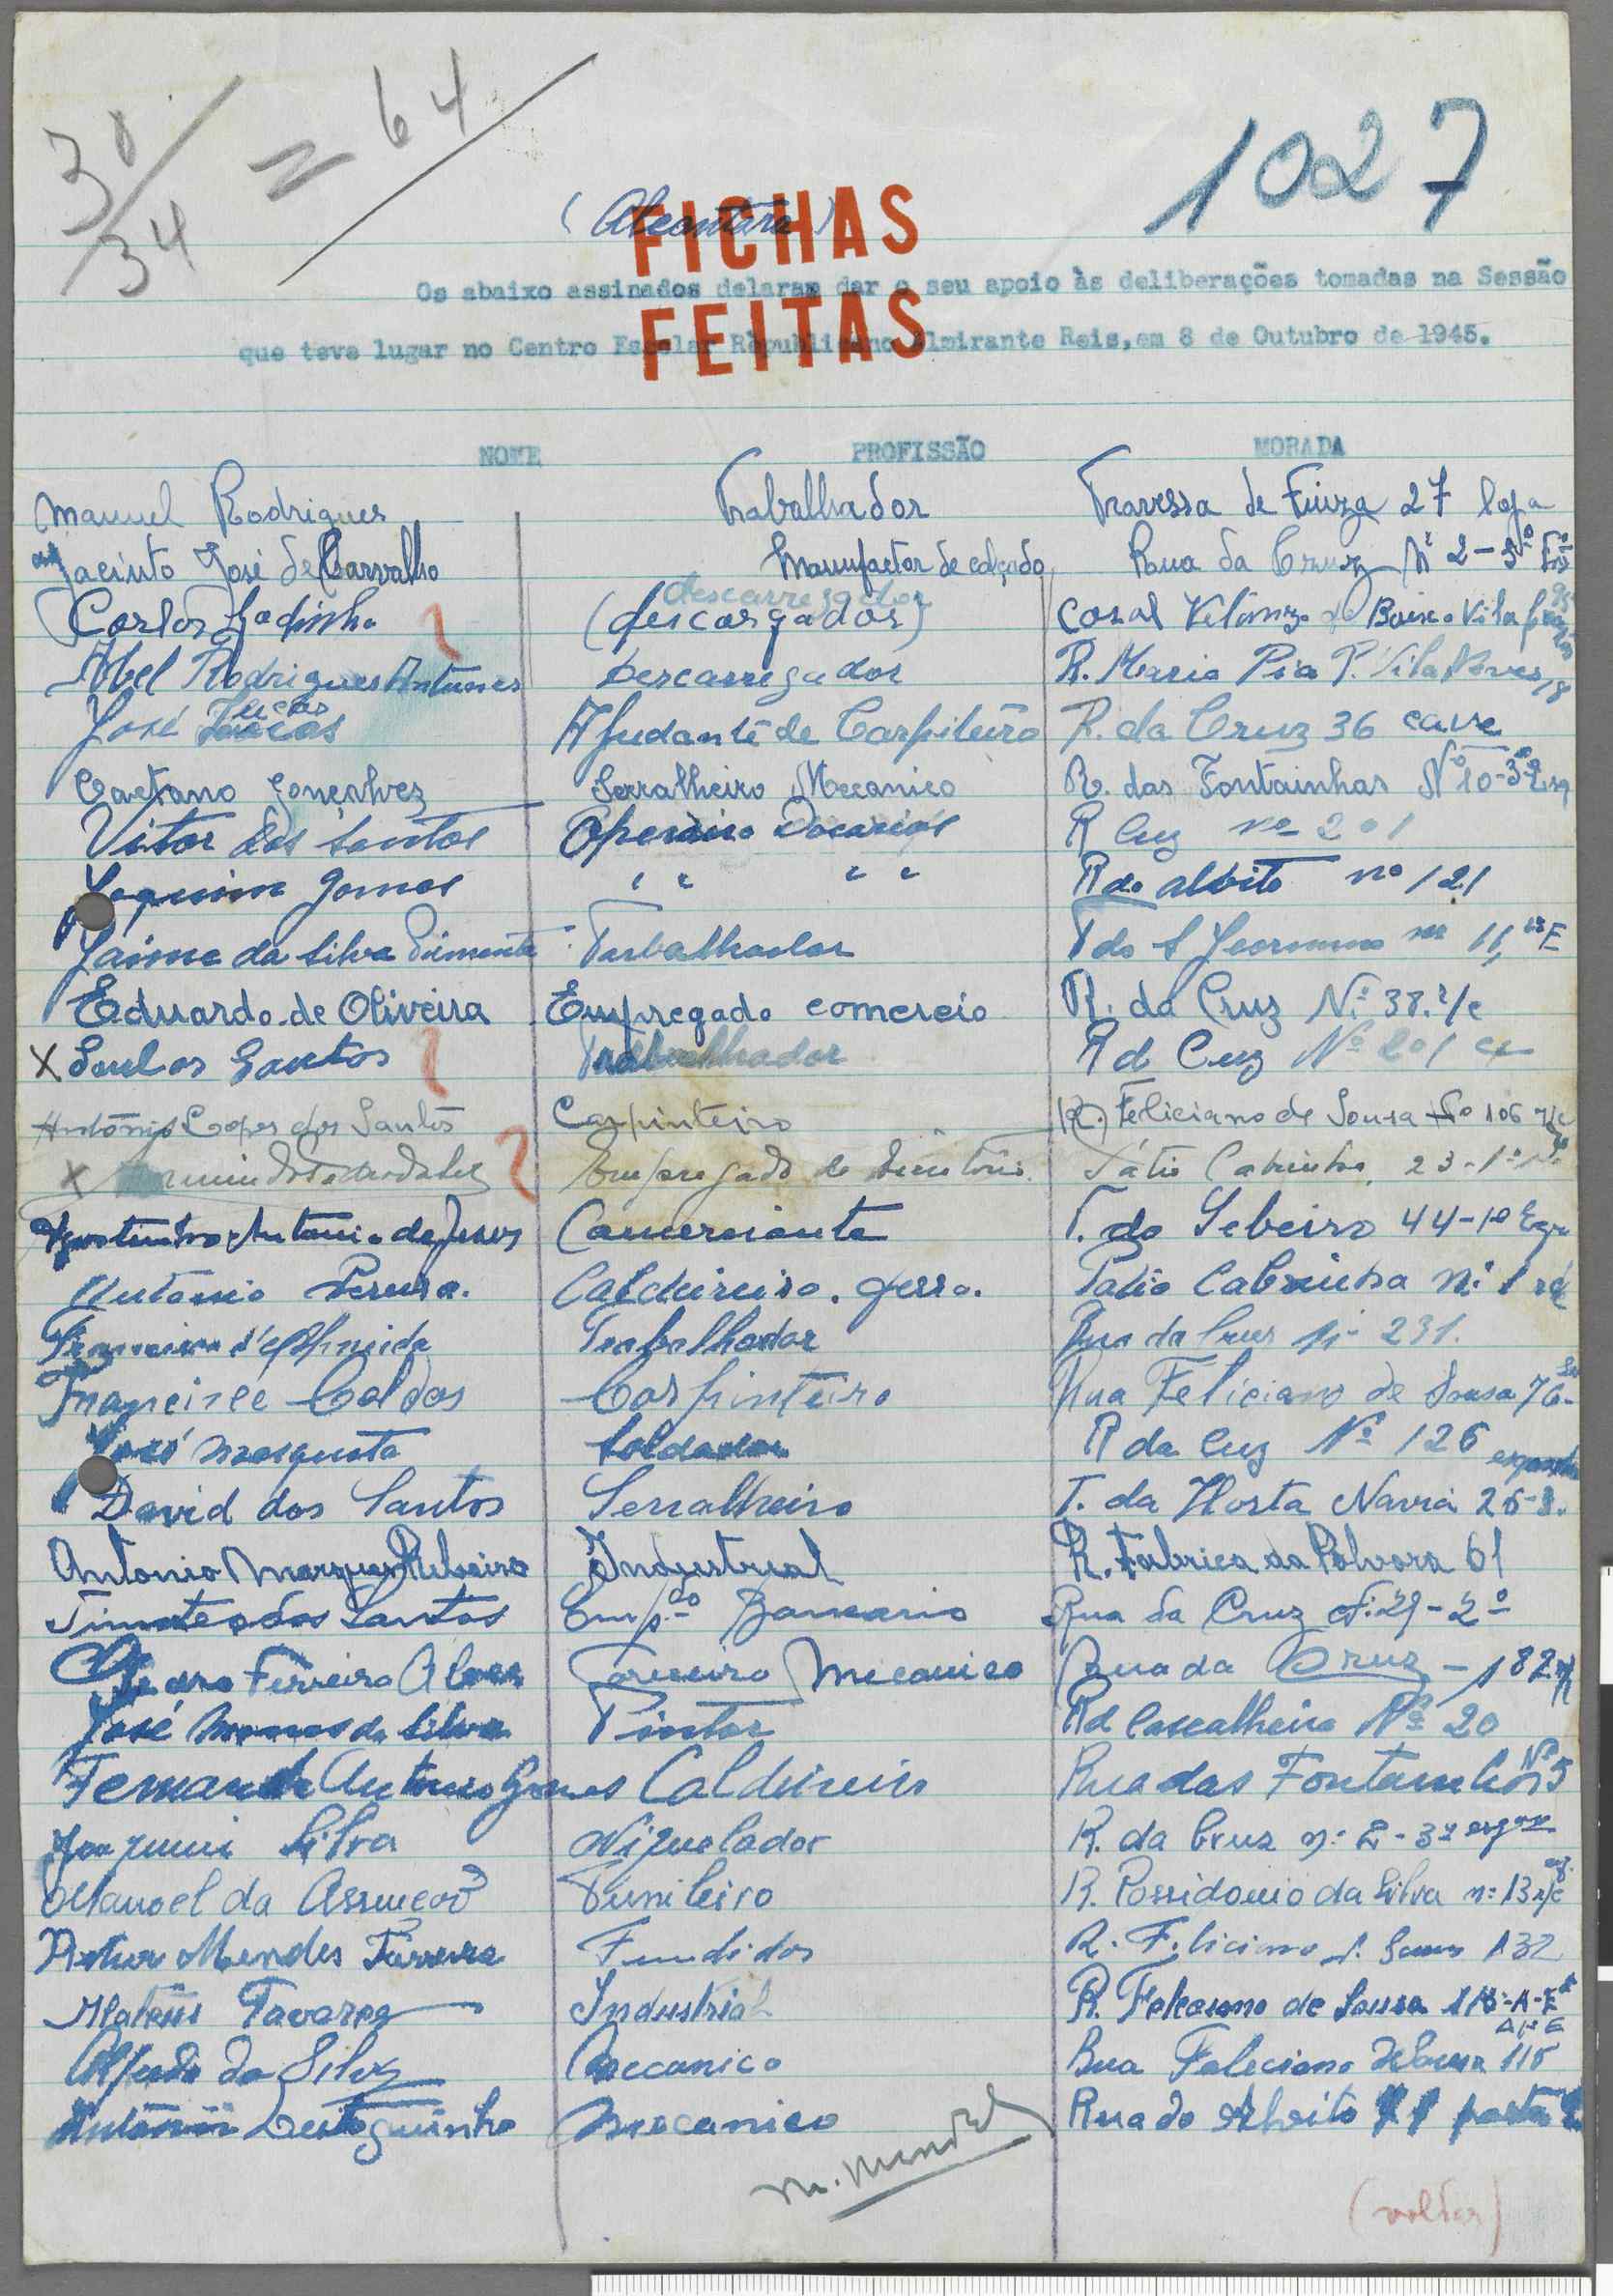 30/34 = 64
1027
(Alcantara)
FICHAS
FEITAS
Os abaixo assinados delaram dar o seu apoio às deliberações tomadas na Sessão
que teve lugar no Centro Escolar Républicano Almirante Reis, em 8 de Outubro de 1945.
NOME PROFISSÃO MORADA
Manuel Rodrigues Trabalhador Travessa de Fiuza 27 loja
Jacinto José de Carvalho Manufactor de calçado Rua da Cruz Nº 2-3º
Carlos Godinho (descargador) descarregador Casal Baixo Vila
Abel Rodrigues Antunes Descarregador R. Maria Pia P. Vila Neves 18
José Lucas Lucas Ajudante de Carpiteiro R. da Cruz 36 cave
Caetano Gonçalves Serralheiro Mecanico R. das Fontainhas Nº 10-3º Esq
Vitor dos Santos Operario R Cuz nº 201
Joaquim Gomes " " " " R do alvito nº 121
Jaime da Silva Pimenta Trabalhador T do S Jeronimo nº 11,
Eduardo de Oliveira Empregado comercio R. da Cruz Nº 38. r/c
X Santos Trabalhador R d Cuz Nº 201
António Lopes dos Santos Carpinteiro R. Feliciano de Sousa Nº 106 r/c
X Empregado de Pátio Cabrinha, 23-1º
Agostinho Antonio de Jesus Comerciante T. do Sebeiro 44-1º
Antonio Pereira. Caldeireiro. ferro. Patio Cabrinha Nº 1
Francisco d'Almeida Trabalhador Rua da Cruz Nº 231.
Francisco Caldas Carpinteiro Rua Feliciano de Sousa 76
José Mosquete Soldador R da Cuz Nº 126
David dos Santos Serralheiro T. da Horta Navia 26-
Antonio Marques Ribeiro Industrial R. Fabrica da Polvora 61
Timoteo dos Santos Emp.do Bancario Rua da Cruz Nº 29-2º
Ferreira Alves Torneiro Mecanico Rua da Cruz - 182
José da Silva Pintor R d Cascalheira Nº 20
Fernando Antonio Gomes Caldeireiro Rua das Fontainhas Nº 5
Joaquim Silva Niquelador R. da Cruz nº 2-3º
Manoel da Assunção Funileiro R. Possidonio da Silva nº 13 r/c
Artur Mendes Ferreira Fundidor R. Feliciano d. Sousa 132
Mateus Tavares Industrial R. Feleciano de Sousa
Alfredo da Silva Mecanico Rua Feleciano de Sousa 115
António Mecanico Rua do Alvito porta
M. Mendes
(voltar)